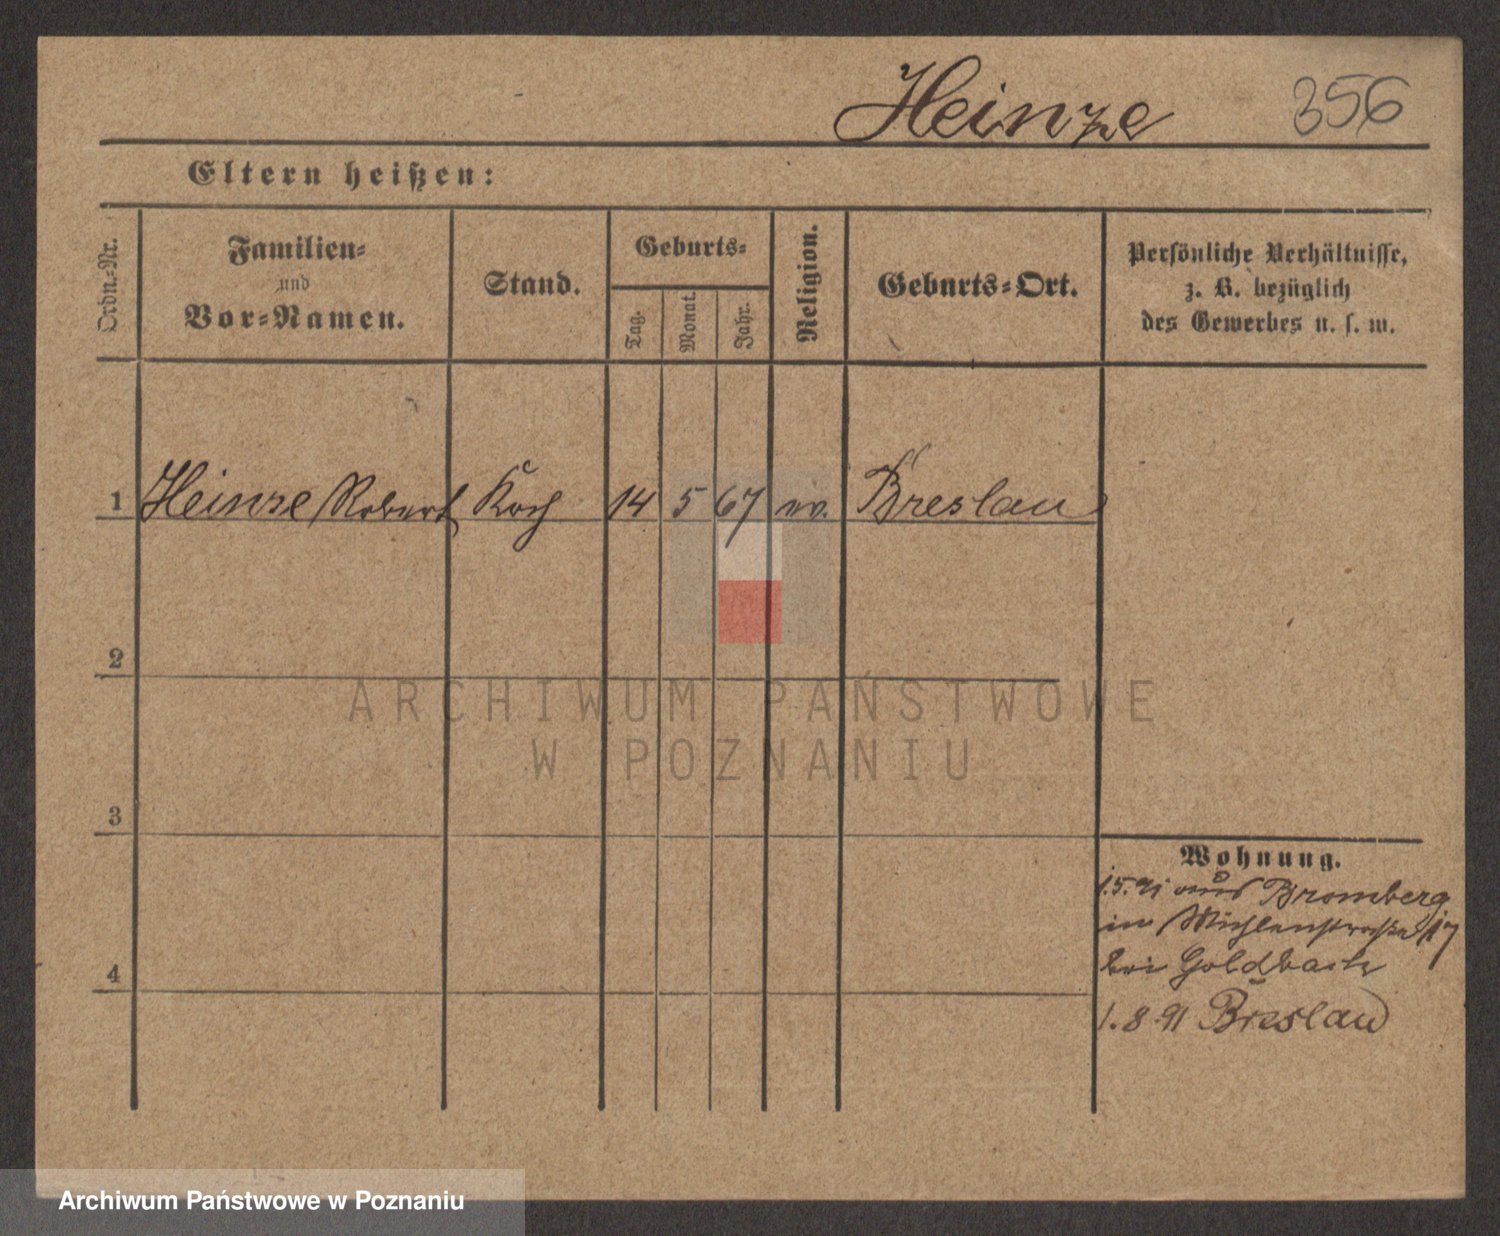 Heinze 356
Eltern heißen:
Ordn.-Nr.
Familien-
und
Vor-Namen.
Stand.
Geburts-
Tag.
Monat.
Jahr.
Religion.
Geburts-Ort.
Persönliche Verhältnisse,
z. B. bezüglich
des Gewerbes u. s. w.
1 Heinze Robert Koch 14 5 67 ev. Breslau
2
3
4
Wohnung.
1.5.91 aus Bromberg
in Mühlenstraße 17
bei Goldbach
1.8.91 Breslau
ARCHIWUM PAŃSTWOWE
W POZNANIU
Archiwum Państwowe w Poznaniu